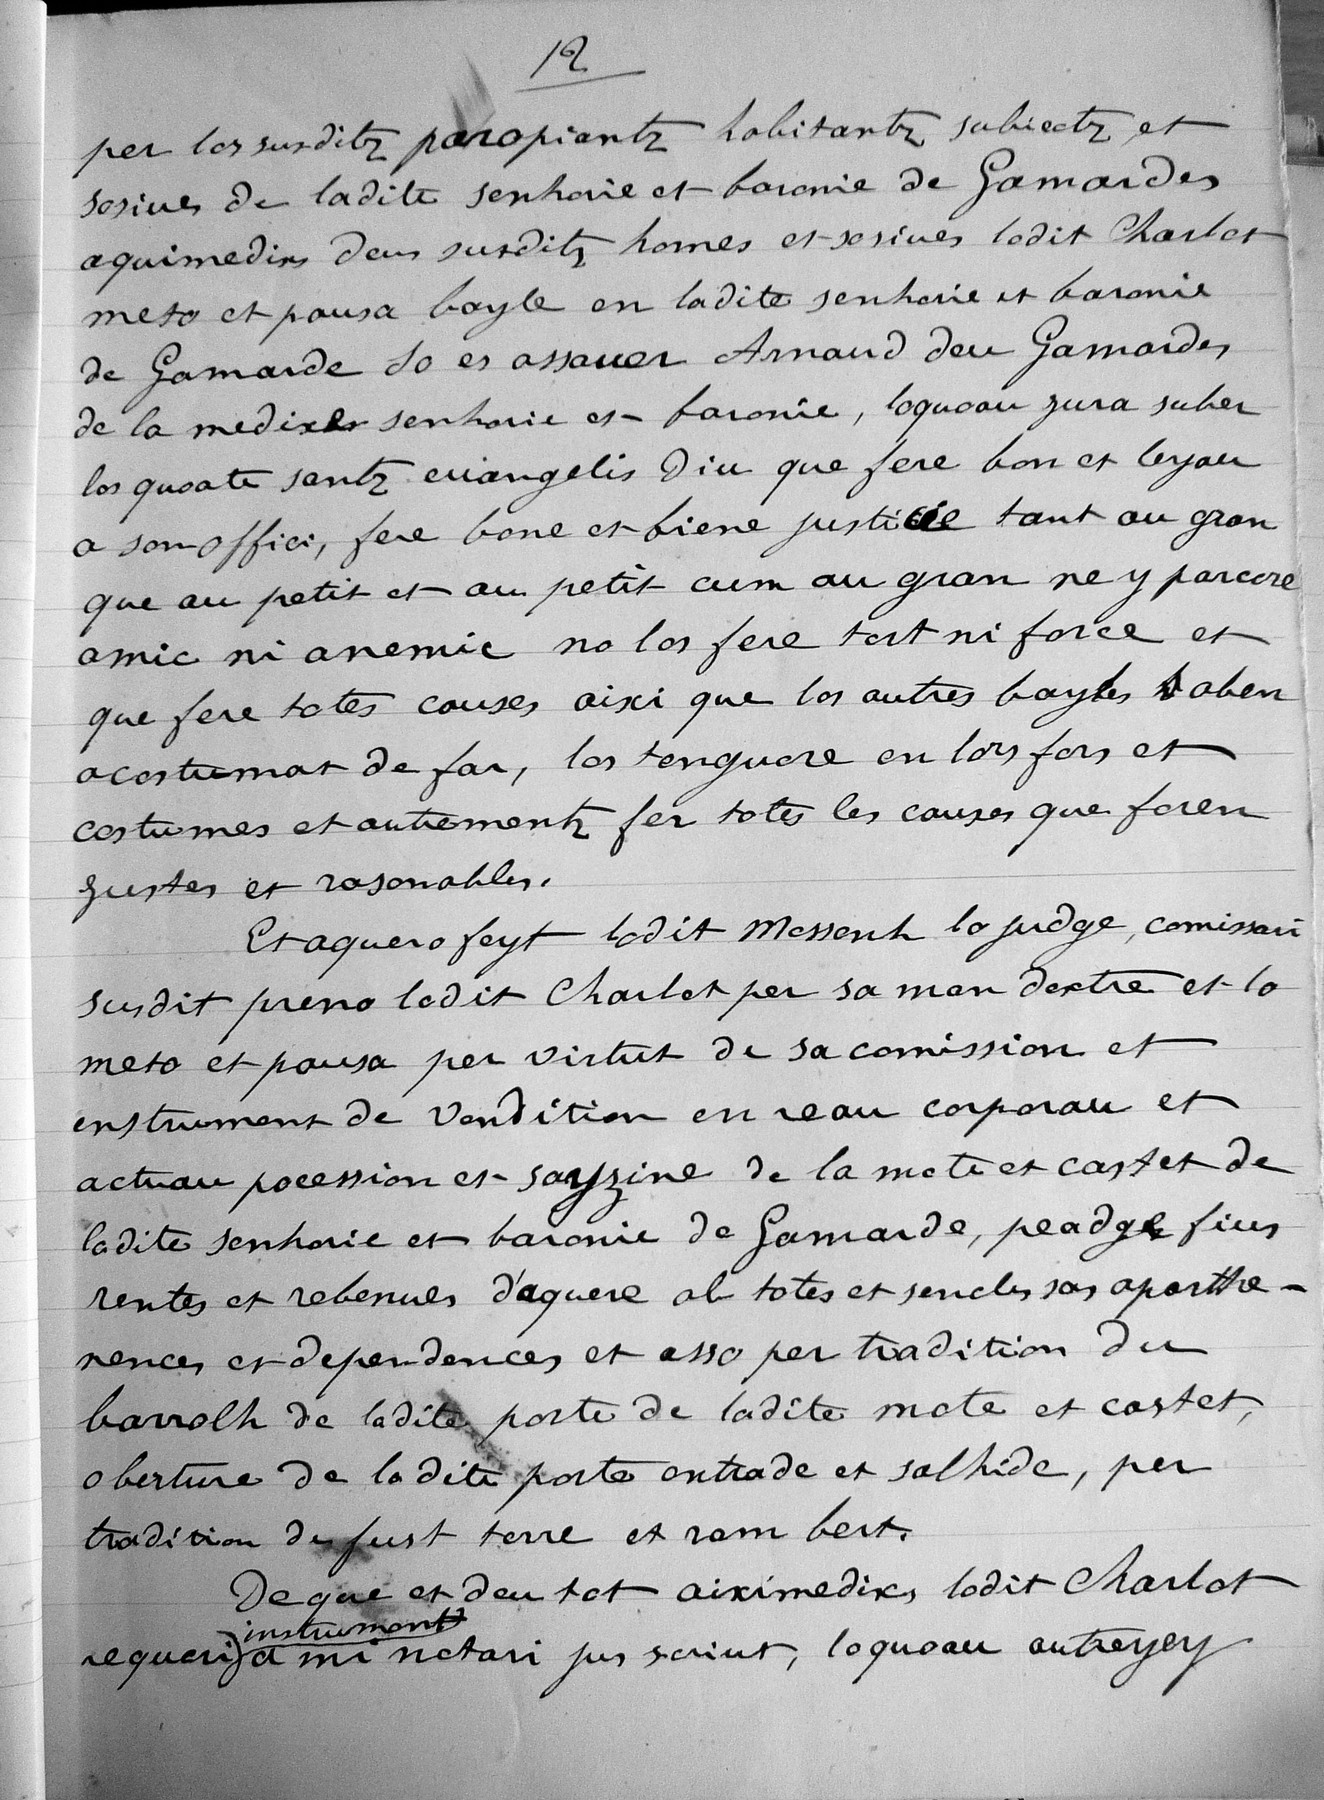 12
per los susditz paropiantz habitantz subiectz et
sosiues de ladite senhorie et baronie de Gamardes
aquimedixs deus susditz homes et sosiues lodit Charlot
meto et pausa bayle en ladite senhorie et baronie
de Gamarde so es assauer Arnaud deu Gamardes
de la medixer senhorie et baronie, loquoau jura suber
los quoate sentz euangelis Diu que fere bon et leyau
a son offici, fere bone et biene justicie tant au gran
que au petit et au petit cum au gran ne y parcere
amic ni anemic no los fere tort ni force et
que fere totes causes aixi que los autres bayles aben
acostumat de far, los tenguore en lors fors et
costumes et autrementz fer totes les causes que foren
justes et rasonables.
Et aquero feyt lodit Mossenh lo judge, comissari
susdit preno lodit Charlot per sa man dextre et lo
meto et pausa per virtut de sa comission et
enstrument de vendition en reau corporau et
actuau pocession et sayzine de la mote et castet de
ladite senhorie et baronie de Gamarde, peadge fius
rentes et rebenues d'aquere ab totes et sencles sas aparthe-
nences et dependences et asso per tradition du
barrolh de ladite porte de ladite mote et castet,
oberture de ladite porte entrade et salhide, per
tradition de fust terre et ram bert.
De que et deu tot aiximedixs lodit Charlot
instrument
requeri a mi notari jus scriut, loquoau autreyey